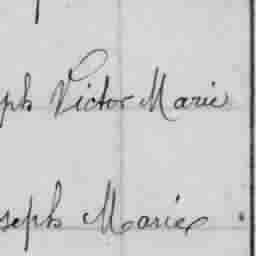 ph Victor Marie
seph Marie